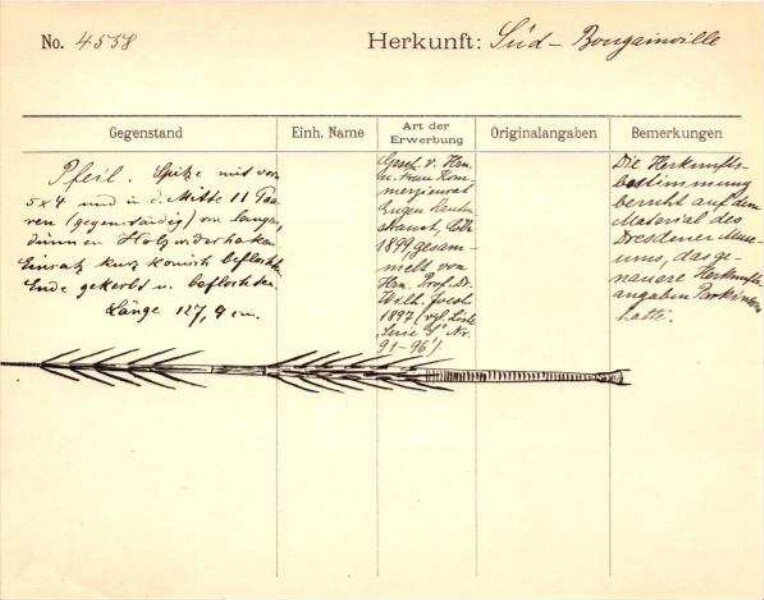 No. 4538
Herkunft: Süd-Bougainville
Gegenstand
Einh. Name
Art der Erwerbung
Originalangaben
Bemerkungen
Pfeil. Spitze mit vorn
5 x 4 und in d. Mitte 11 Paa-
ren (gegenständig) von langen,
dünnen Holzwiderhaken.
Einsatz kurz konisch beflochten.
Ende gekerbt u. beflochten.
Länge 127,9 cm.
Gesch. v. Hrn.
u. Frau Kom-
merzienrat
Eugen Rauten-
strauch, Cöln
1899, gesam-
melt von
Hrn. Prof. Dr.
Wilh. Joest
1897 (vgl. Liste
"Serie S" Nr.
91-96)
Die Herkunfts-
bestimmung
beruht auf dem
Material des
Dresdener Muse-
ums, das ge-
nauere Herkunfts-
angaben Parkinsons
hatte.